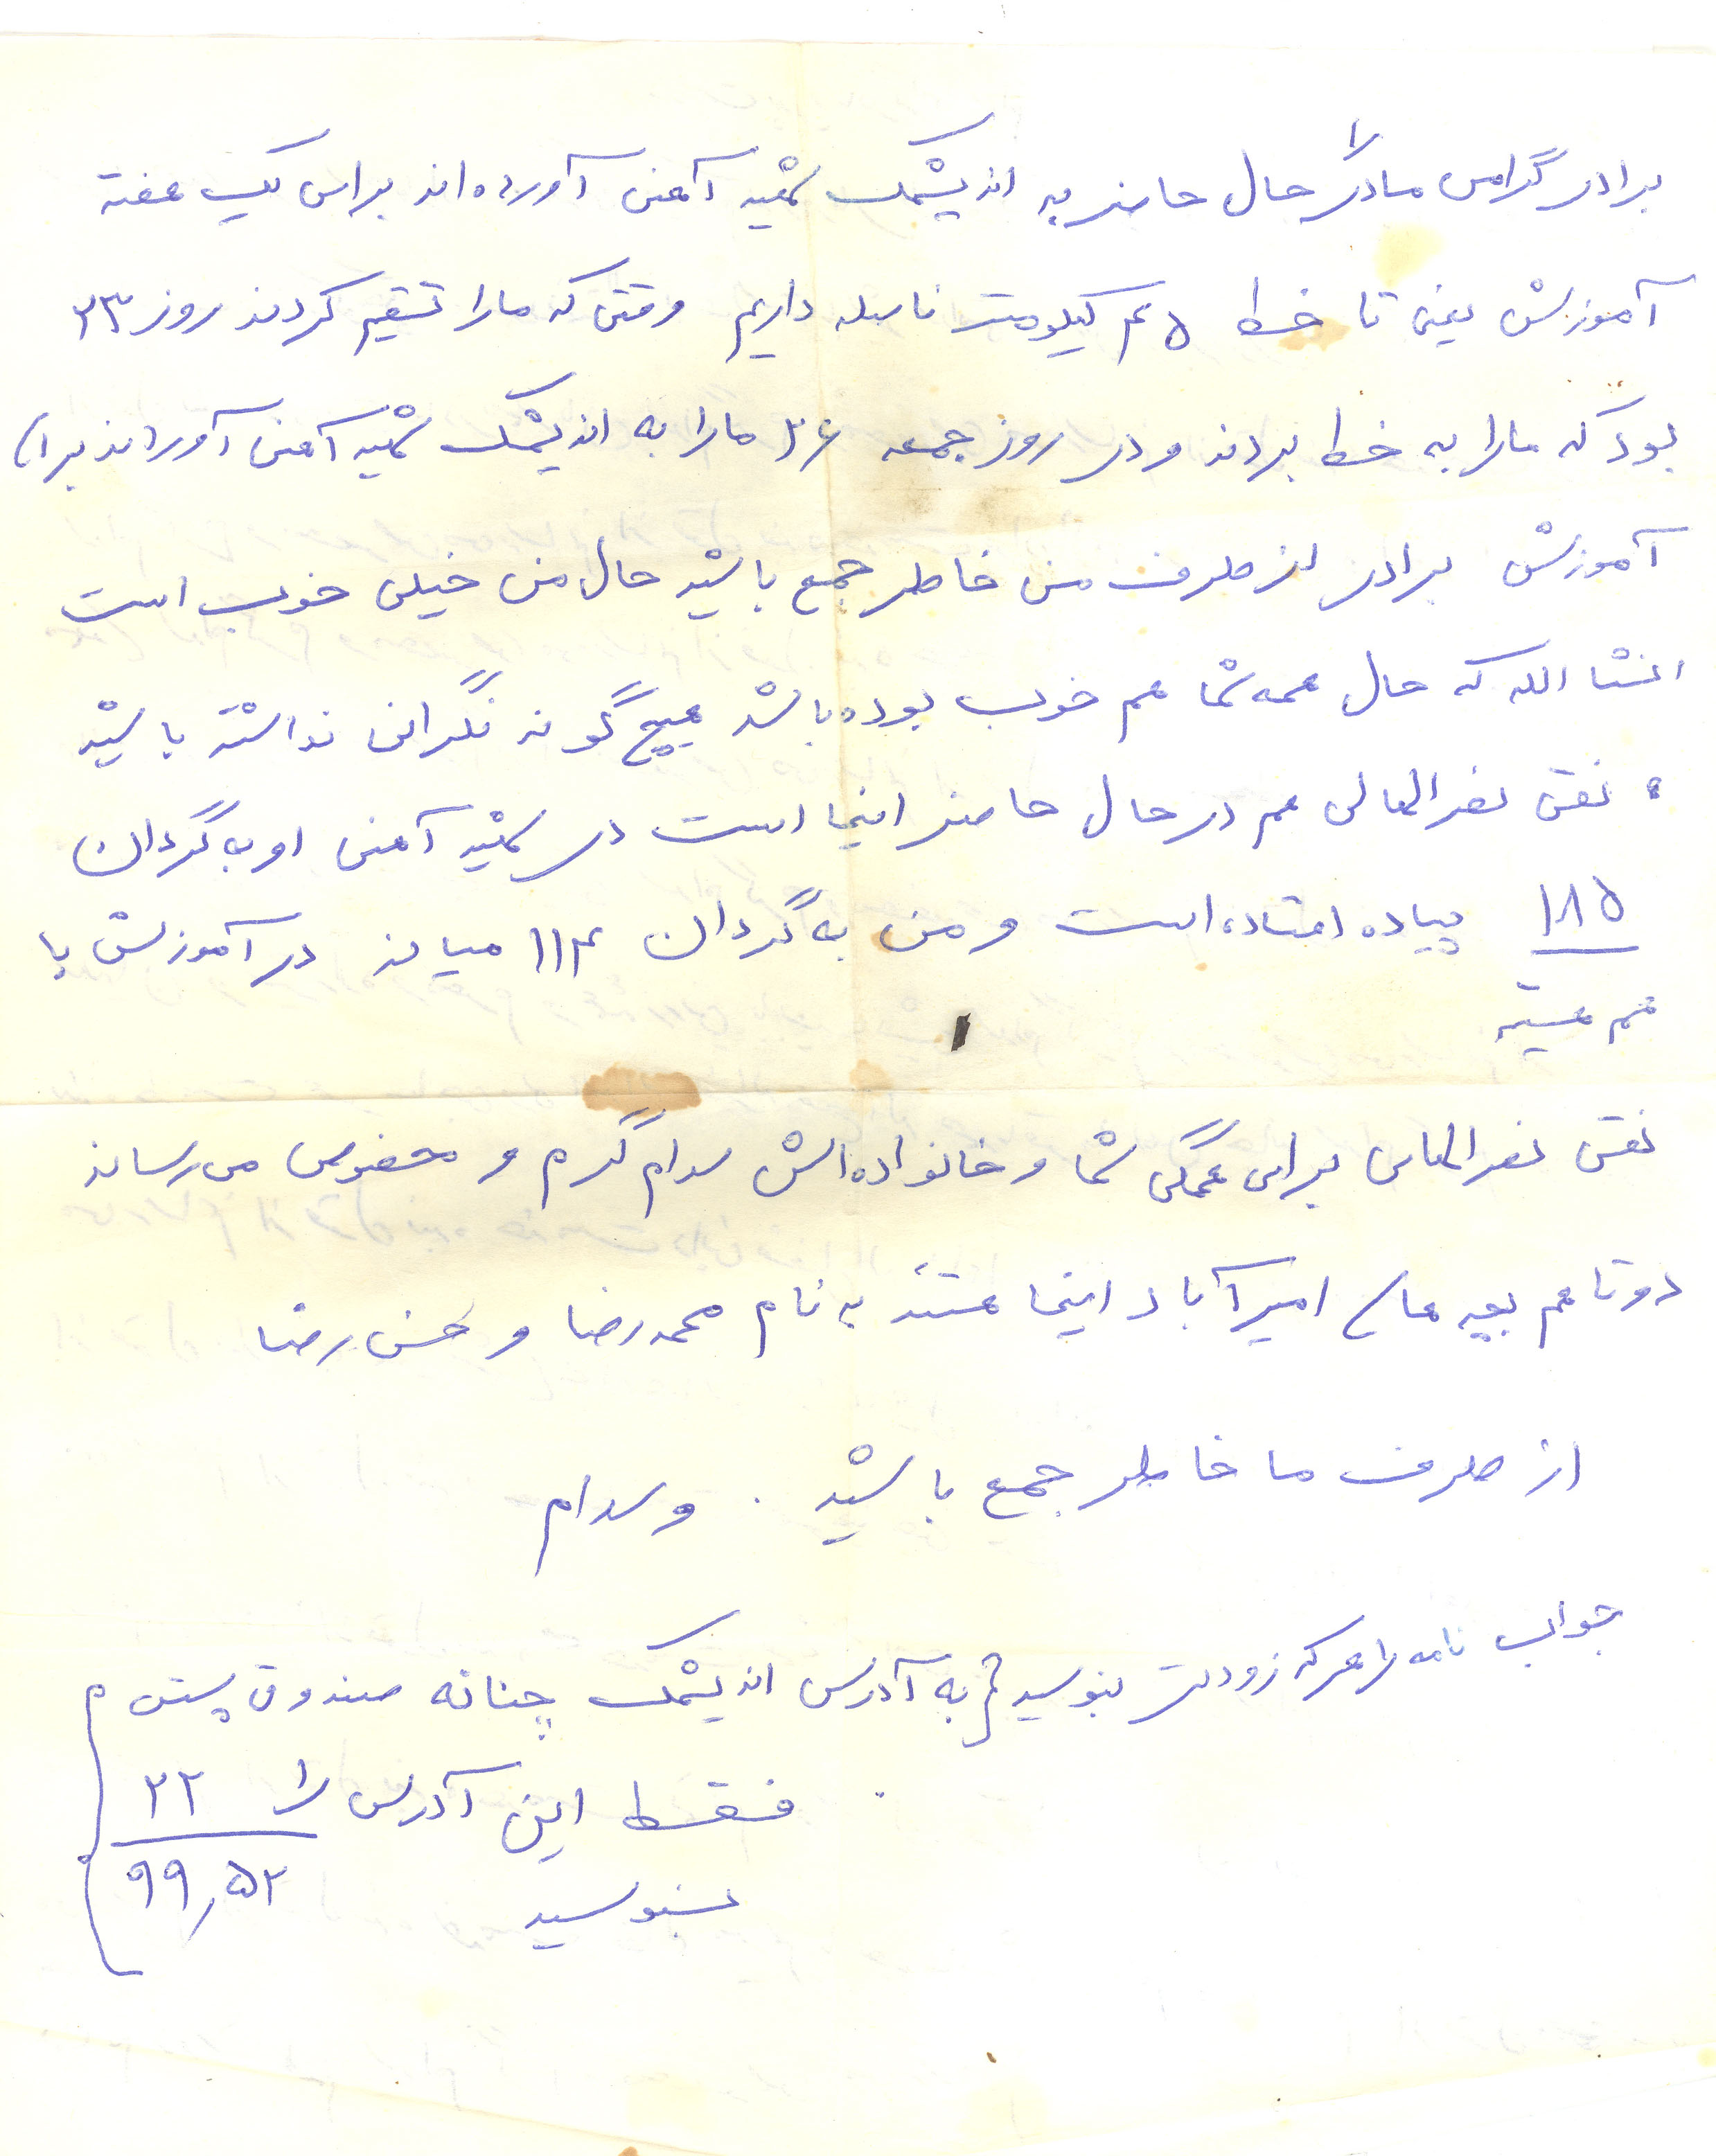 برادر گرامی ما را در حال حاضر به اندیمشک شهید آهنی آورده‌اند برای یک هفته
آموزش یعنی تا خط ۴۵ کیلومتر فاصله داریم وقتی که ما را تقسیم کردند روز ۲۳
بود که ما را به خط بردند و در روز جمعه ۲۶ ما را به اندیمشک شهید آهنی آوردند برای
آموزش برادر از طرف من خاطر جمع باشید حال من خیلی خوب است
انشا الله که حال همه شما هم خوب بوده باشد هیچ گونه نگرانی نداشته باشید
نقی نصرالهالی هم در حال حاضر اینجا است در شهید آهنی او به گردان
۱۸۵ پیاده افتاده است و من به گردان ۱۱۴ میباند در آموزش با
هم هستیم
نقی برای همگی شما و خانواده‌اش سلام گرم و مخصوص می‌رساند
دو تا هم بچه های امیرآباد اینجا هستند به نام محمد رضا و حسن رضا
از طرف ما خاطر جمع باشید . وسلام
جواب نامه را هر که زودتر بنویسید به آدرس اندیمشک چنانه صندوق پستی
فقط این آدرس را ۲۲
بنویسید ۹۹٫۵۲